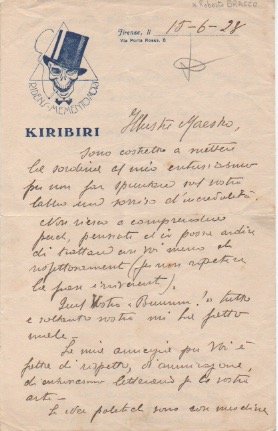 x Roberto BRACCO
Firenze, li 15-6-28
Via Porta Rossa, 8
RIDENS MEMENTO
KIRIBIRI
Illustre Maestro,
Sono costretto a mettere
la sordina al mio entusiasmo
per non far spuntare sul vostro
labbro un sorriso d'incredulità.
Non riesco a comprendere
perché, pensiate ch'io possa
di trattare con voi meno che
rispettosamente (per non ripetere
la frase irriverenti).
Quel Vostro è tutto
e soltanto vostro mi ha fatto
male.
La mia amicizia per Voi è
fatta di rispetto, d'ammirazione,
di entusiasmo per la vostra
arte.
E voi potete con